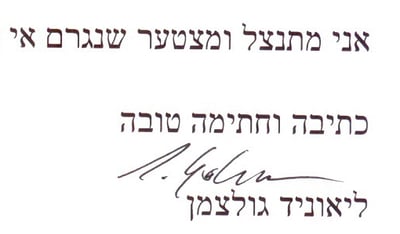 אני מתנצל ומצטער שנגרם אי
כתיבה וחתימה טובה
ליאוניד גולצמן